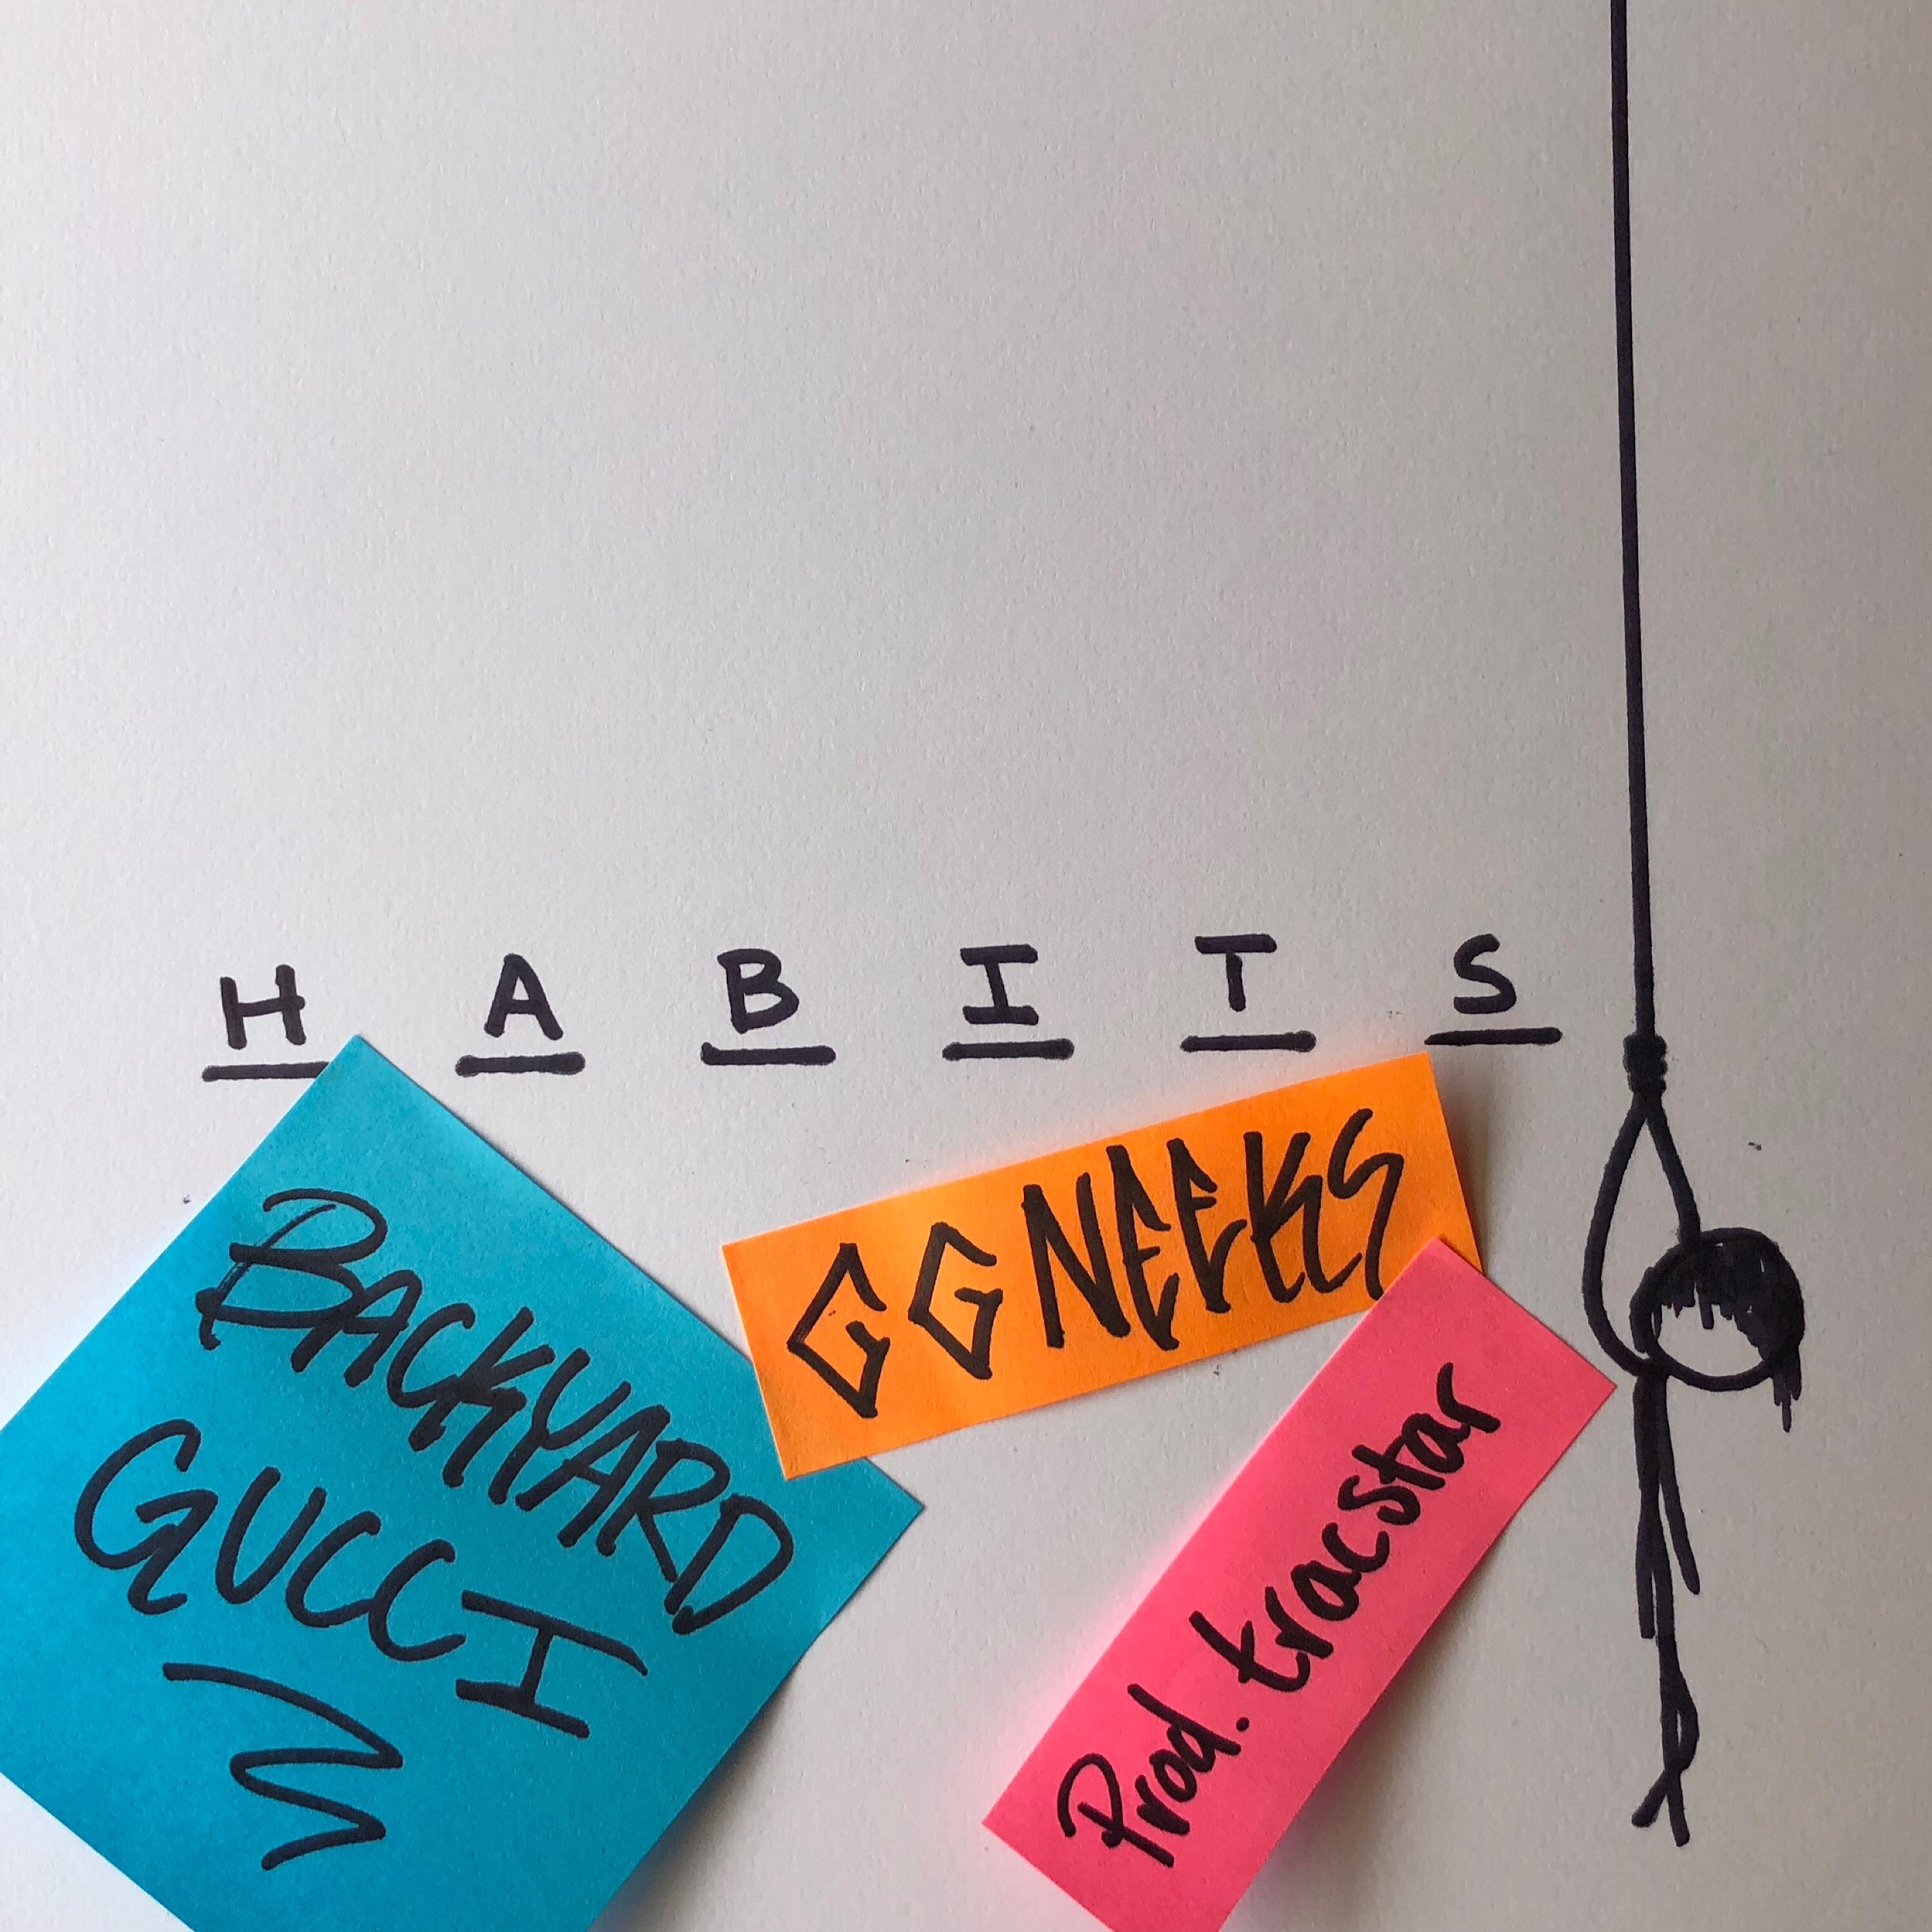 H A B I T S
BACKYARD
GUCCI
GG NEEKS
Prod. tracstar